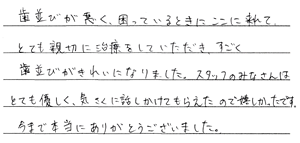 歯並びが悪く、困っているときにここに来れて、
とても親切に治療をしていただき、すごく
歯並びがきれいになりました。スタッフのみなさんは
とても優しく、気さくに話しかけてもらえたので嬉しかったです。
今まで本当にありがとうございました。